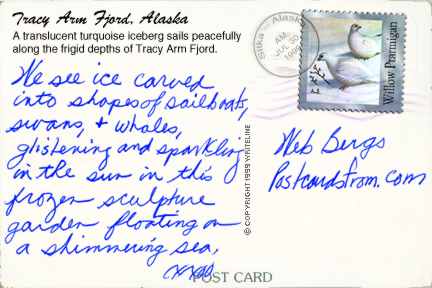 Tracy Arm Fjord, Alaska
A translucent turquoise iceberg sails peacefully
along the frigid depths of Tracy Arm Fjord.
We see ice carved
into shapes of sailboats,
swans, & whales,
glistening and sparkling
in the sun in this
frozen sculpture
garden floating on
a shimmering sea.
© COPYRIGHT 1999 WRITELINE
Sitka Alaska
AM
JUL
1999
Willow Ptarmigan
Web Bergs
Postcardsfrom.com
POST CARD